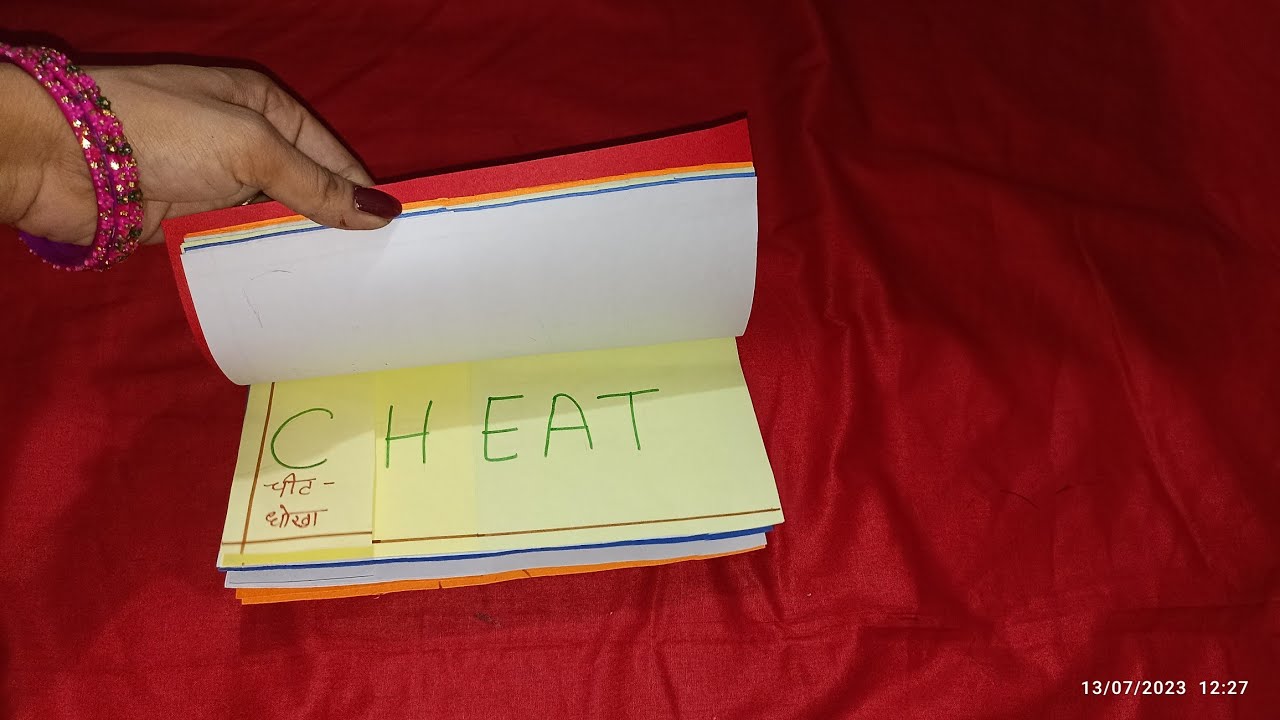 CHEAT
चीट -
धोखा
13/07/2023 12:27